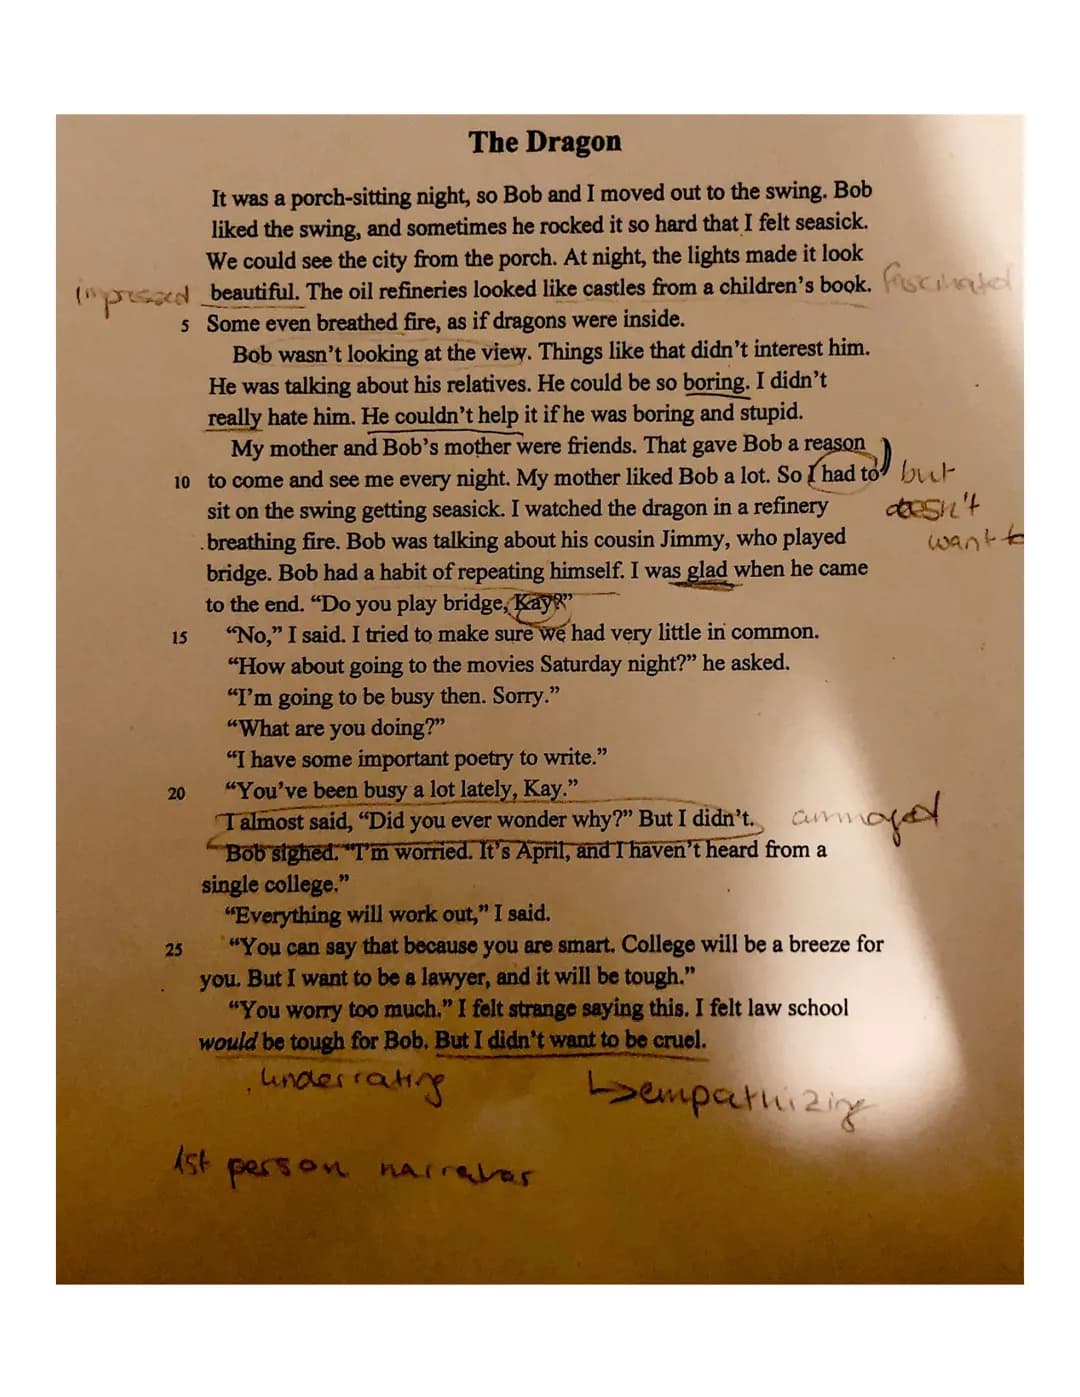 The Dragon
It was a porch-sitting night, so Bob and I moved out to the swing. Bob
liked the swing, and sometimes he rocked it so hard that I felt seasick.
We could see the city from the porch. At night, the lights made it look
impressed beautiful. The oil refineries looked like castles from a children's book. fascinated
5 Some even breathed fire, as if dragons were inside.
Bob wasn't looking at the view. Things like that didn't interest him.
He was talking about his relatives. He could be so boring. I didn't
really hate him. He couldn't help it if he was boring and stupid.
My mother and Bob's mother were friends. That gave Bob a reason
10 to come and see me every night. My mother liked Bob a lot. So I had to but
sit on the swing getting seasick. I watched the dragon in a refinery doesn't
breathing fire. Bob was talking about his cousin Jimmy, who played want to
bridge. Bob had a habit of repeating himself. I was glad when he came
to the end. “Do you play bridge, Kay?”
15 “No,” I said. I tried to make sure we had very little in common.
“How about going to the movies Saturday night?” he asked.
“I'm going to be busy then. Sorry.”
“What are you doing?”
“I have some important poetry to write.”
20 “You've been busy a lot lately, Kay.”
I almost said, “Did you ever wonder why?” But I didn't. annoyed
Bob sighed. “I'm worried. It's April, and I haven't heard from a
single college.”
“Everything will work out,” I said.
25 “You can say that because you are smart. College will be a breeze for
you. But I want to be a lawyer, and it will be tough.”
“You worry too much.” I felt strange saying this. I felt law school
would be tough for Bob. But I didn't want to be cruel.
underrating ↳empathizing
1st person narrator